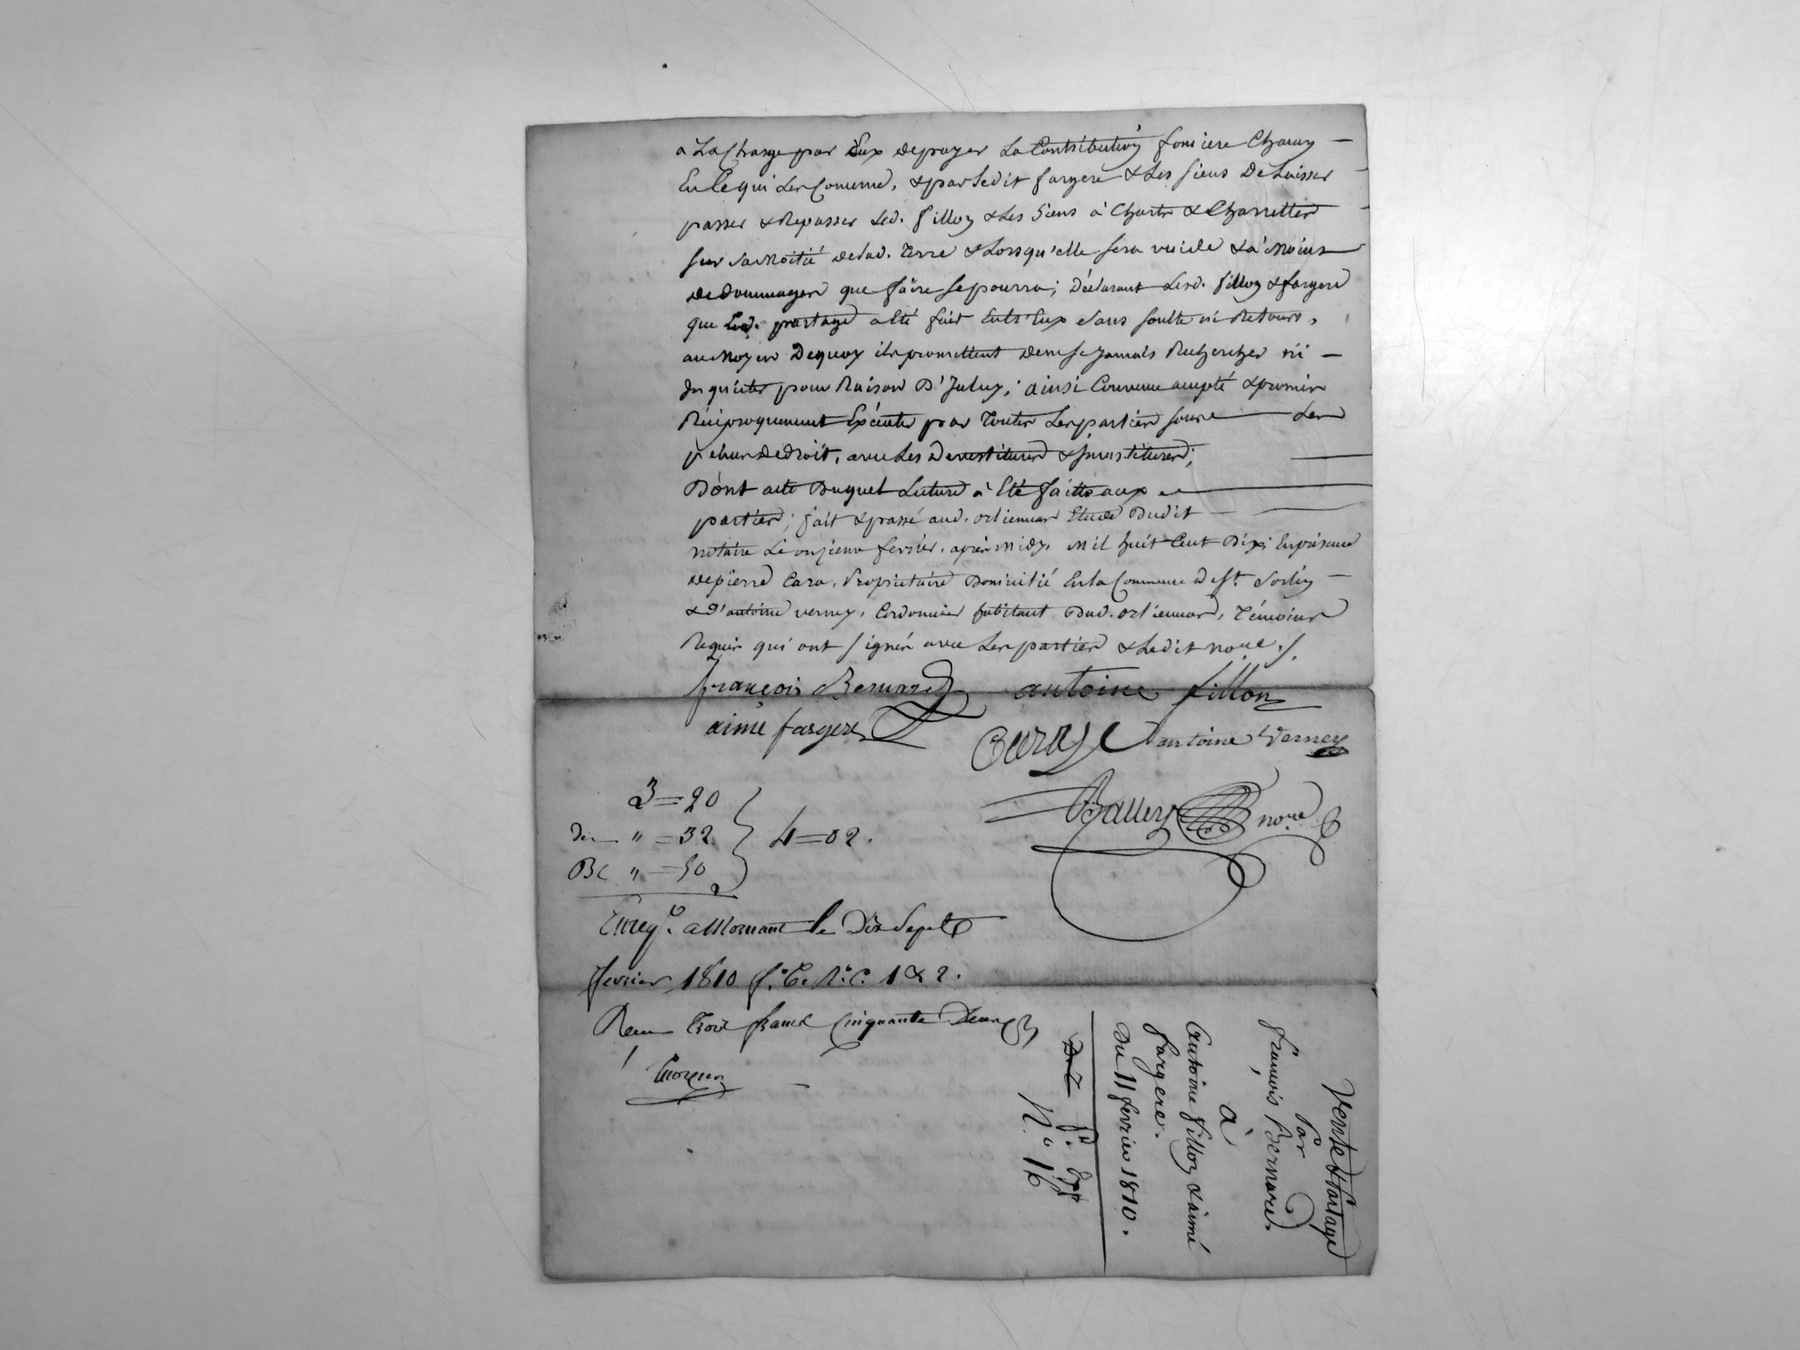 a La Charge par Eux de payer La Contribution fonciere Chacun
En Ce qui Les Concerne, & par Ledit fargere & Les siens De Laisser
passer & Repasser Led. fillon & Les Siens à Chart & Charrettes
sur Sa Moitié de lad. Terre & Lorsqu'elle sera vuide & à Moins
de dommages que faire se pourra; Déclarant Lesd. fillon & fargere
que Led. partage a Eté fait Entr'Eux Sans soulte ni Retours,
au Moyen De quoy ils promettent de ne se jamais Rechercher ni
Inquieter pour Raison D'Iceluy; ainsi Convenu accepté & promis
Réciproquement Exécuter par Toutes Les parties sous Les
peines de droit, avec Les Devestitures & Investitures;
Dont acte Duquel Lecture à Eté faitte aux
parties; fait & passé aud. orlienas Etude Dudit
notaire Le onzieme fevrier, après midy, Mil huit Cent Dix; En présence
de pierre Cara, Propriétaire Domicilié En la Commune de St. Sorlin
& D'antoine verney, Cordonnier habitant Dud. orlienas, Témoins
Requis qui ont signés avec Les parties & Ledit no.re ./.
françois Bernard antoine fillon
aimé fargere
Cara antoine Verney
Balley no.re
3=20
De " =32
Bc " =50
4=02.
Enreg.é a Mornant le Dix Sept
fevrier 1810 f.° 6. R.° C. 1 & 2.
Reçu Trois francs Cinquante Deux C
Vente & Partage
Par
françois Bernard.
à
Antoine fillon & aimé
fargere.
Du 11 fevrier 1810.
N.° 16